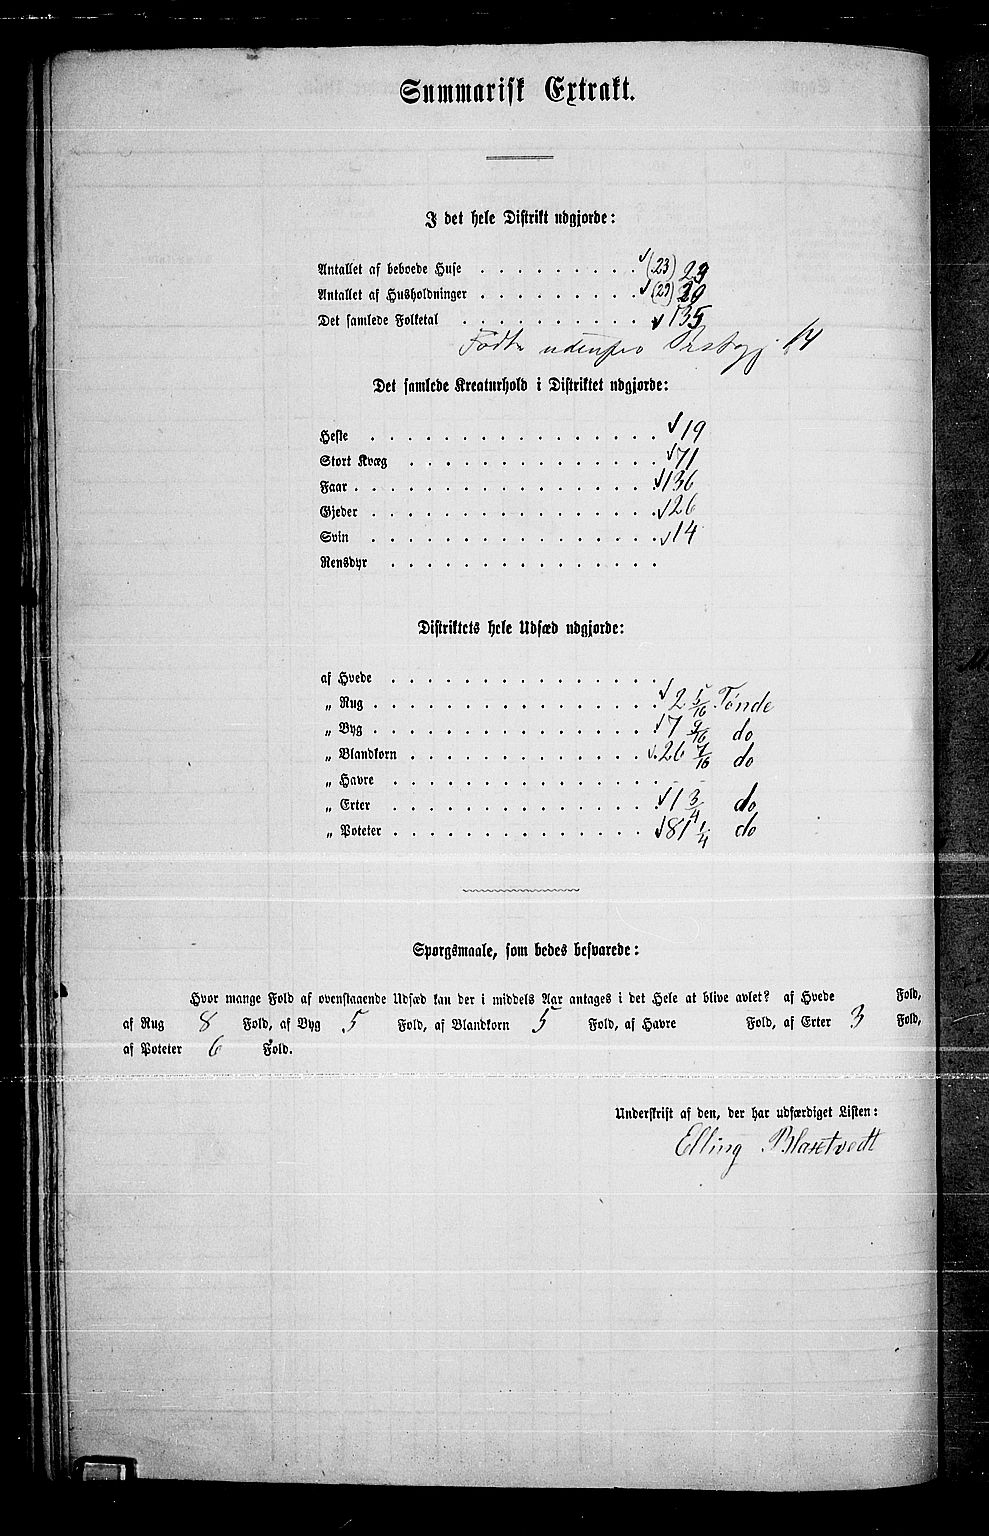 Summarisk Extrakt.
I det hele Distrikt udgjorde:
Antallet af beboede Huse . . . . . . . . . (23) 29
Antallet af Husholdninger . . . . . . . . . (29)
Det samlede Folketal . . . . . . . . . . 135
Födte udenfro Præstegj. 14
Det samlede Kreaturhold i Distriktet udgjorde:
Heste . . . . . . . . . . . . . . . . 19
Stort Kvæg . . . . . . . . . . . . . . 71
Faar . . . . . . . . . . . . . . . . . 136
Gjeder . . . . . . . . . . . . . . . . 26
Svin . . . . . . . . . . . . . . . . 14
Rensdyr . . . . . . . . . . . . . . .
Distriktets hele Udsæd udgjorde:
af Hvede . . . . . . . . . . . . . . .
„ Rug . . . . . . . . . . . . . . . . 2 5/16 Tønde
„ Byg . . . . . . . . . . . . . . . . 7 9/16 do
„ Blandkorn . . . . . . . . . . . . . 26 7/16 do
„ Havre . . . . . . . . . . . . . . .
„ Erter . . . . . . . . . . . . . . . 1 3/4 do
„ Poteter . . . . . . . . . . . . . . 81 1/4 do
Spørgsmaale, som bedes besvarede:
Hvor mange Fold af ovenstaaende Udsæd kan der i middels Aar antages i det Hele at blive avlet? af Hvede Fold,
af Rug 8 Fold, af Byg 5 Fold, af Blandkorn 5 Fold, af Havre Fold, af Erter 3 Fold,
af Poteter 6 Fold.
Underskrift af den, der har udfærdiget Listen:
Elling Blastvedt